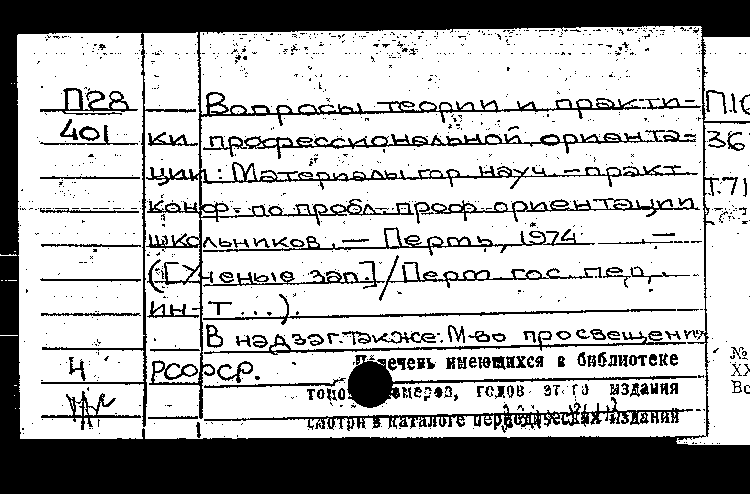 П28 Вопросы теории и практи-
401 ки профессиональной ориента-
ции: Материалы гор. науч.-практ.
конф. по пробл. проф. ориентации
школьников. — Пермь, 1974 . —
([Ученые зап.]/Перм. гос. пед.
ин-т...).
В надзаг. также: М-во просвещения
4 РСФСР.
Перечень имеющихся в библиотеке
томов, номеров, годов этого издания
смотри в каталоге периодических изданий
П.10
36
Т.71
№
XX
Вс